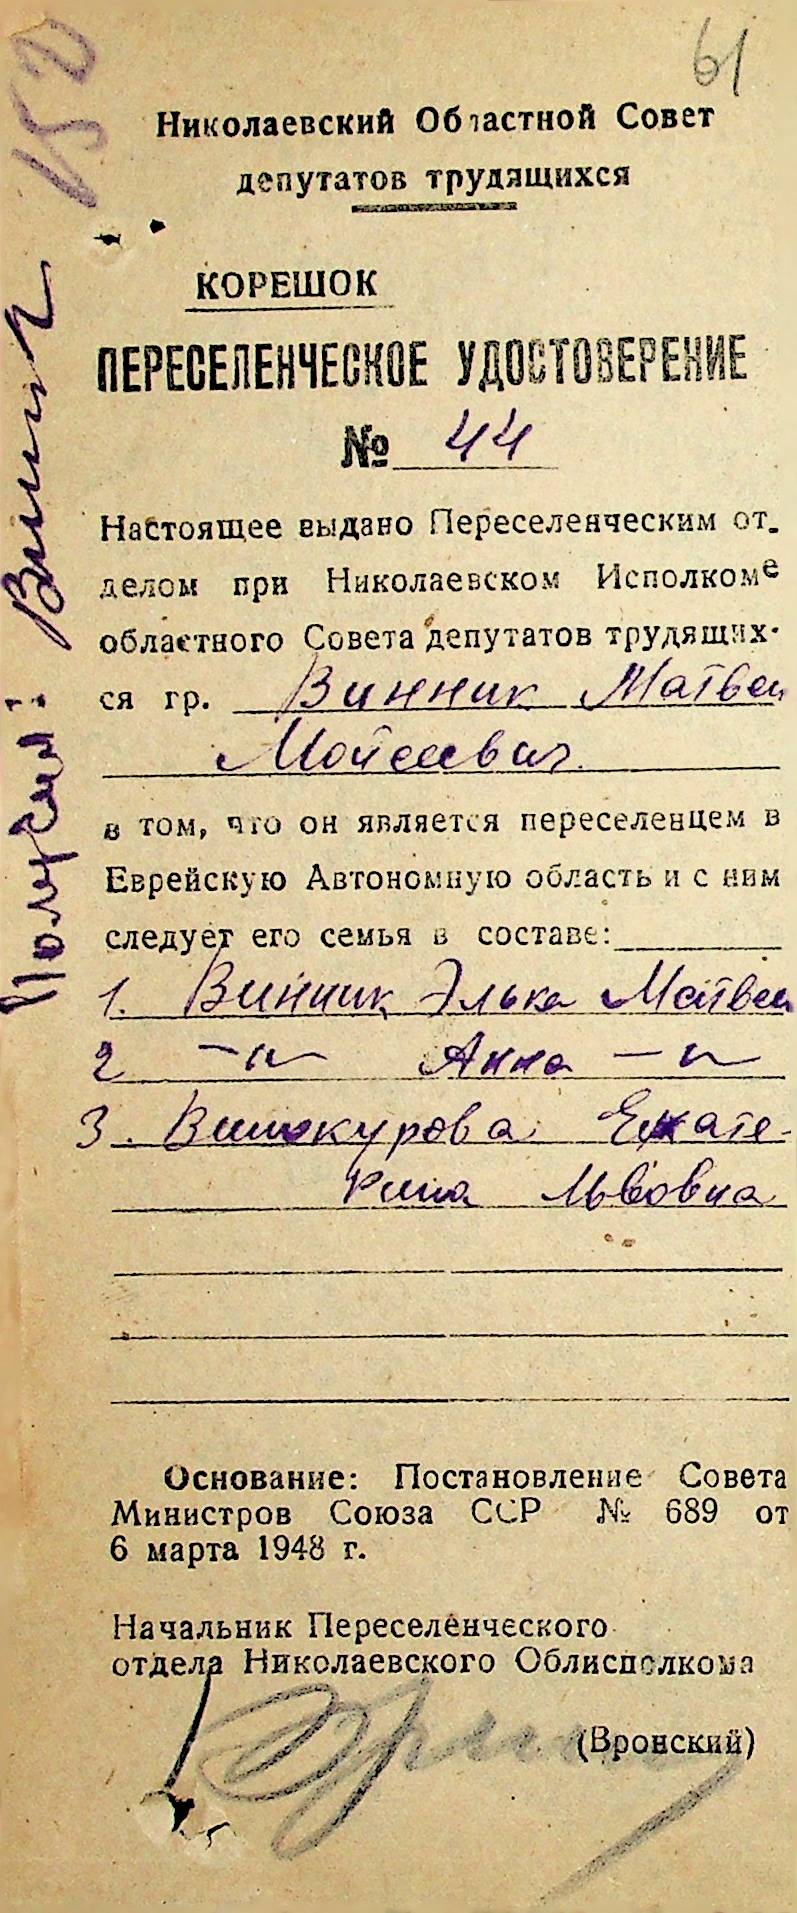 61
150
Николаевский Областной Совет
депутатов трудящихся
КОРЕШОК
ПЕРЕСЕЛЕНЧЕСКОЕ УДОСТОВЕРЕНИЕ
№ 44
Настоящее выдано Переселенческим от-
делом при Николаевском Исполкоме
областного Совета депутатов трудящих-
ся гр. Винник Матвей
Мойсеевич
в том, что он является переселенцем в
Еврейскую Автономную область и с ним
следует его семья в составе:
1. Винник Элька Матвеев
2 —"— Анна —"—
3. Винокурова Екате-
рина Львовна
Основание: Постановление Совета
Министров Союза ССР № 689 от
6 марта 1948 г.
Начальник Переселенческого
отдела Николаевского Облисполкома
(Вронский)
Получил: Винник